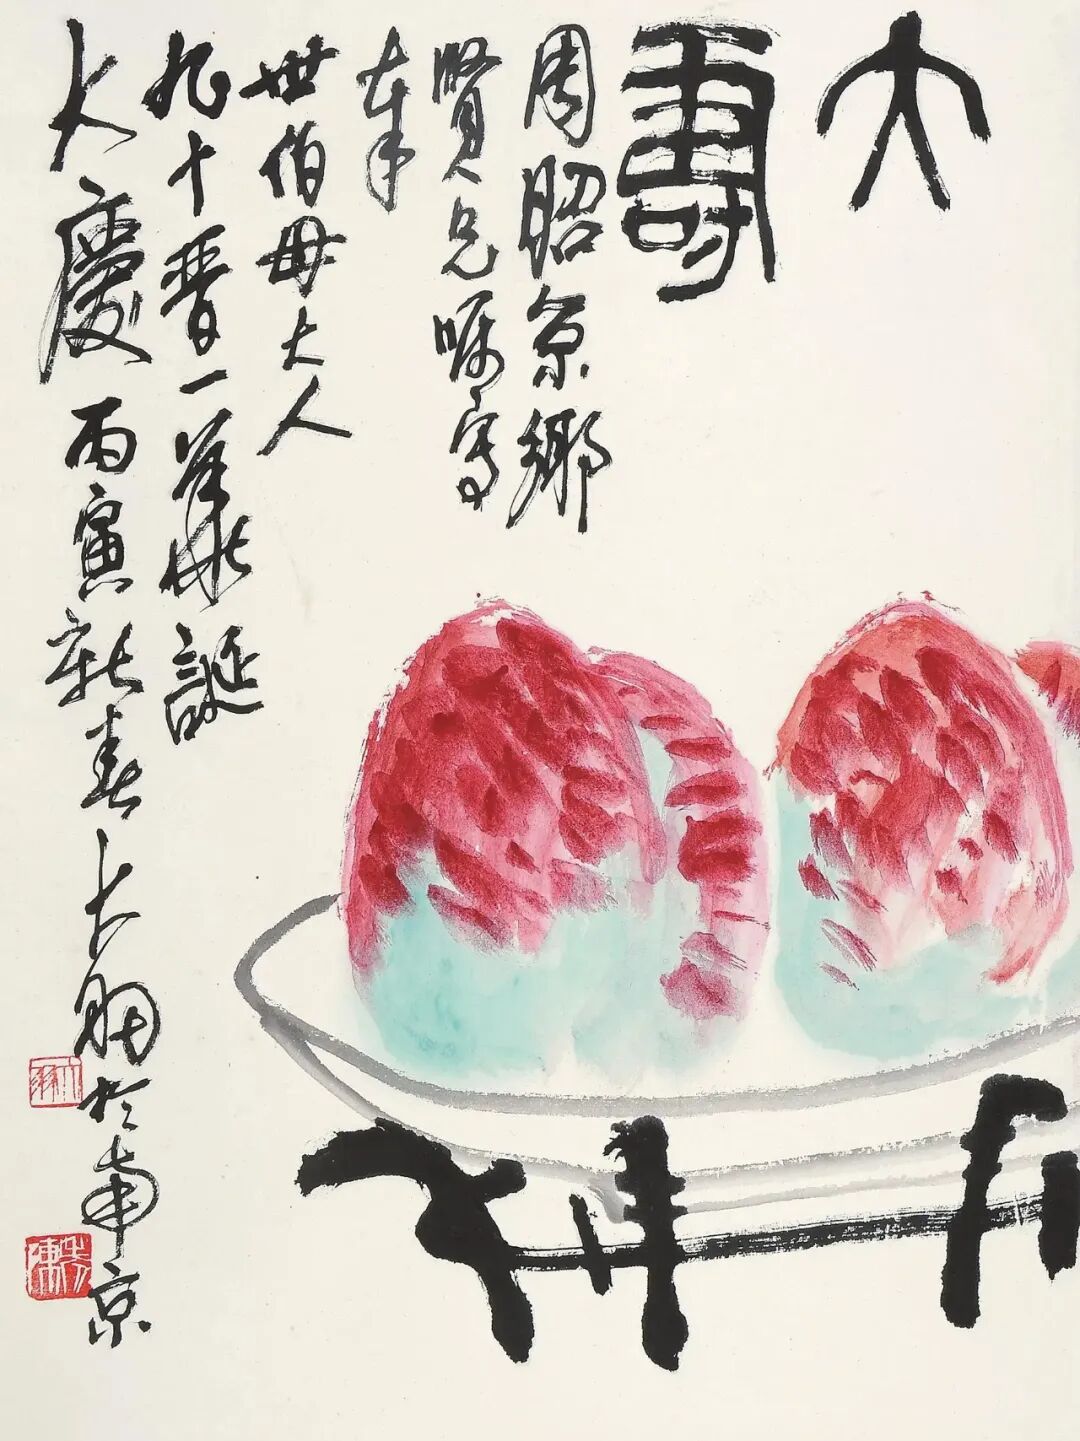 大
壽
周昭京鄉
賢兄囑寫
奉
世伯母大人
九十晉一華誕
大慶 丙寅新春 大羽於南京